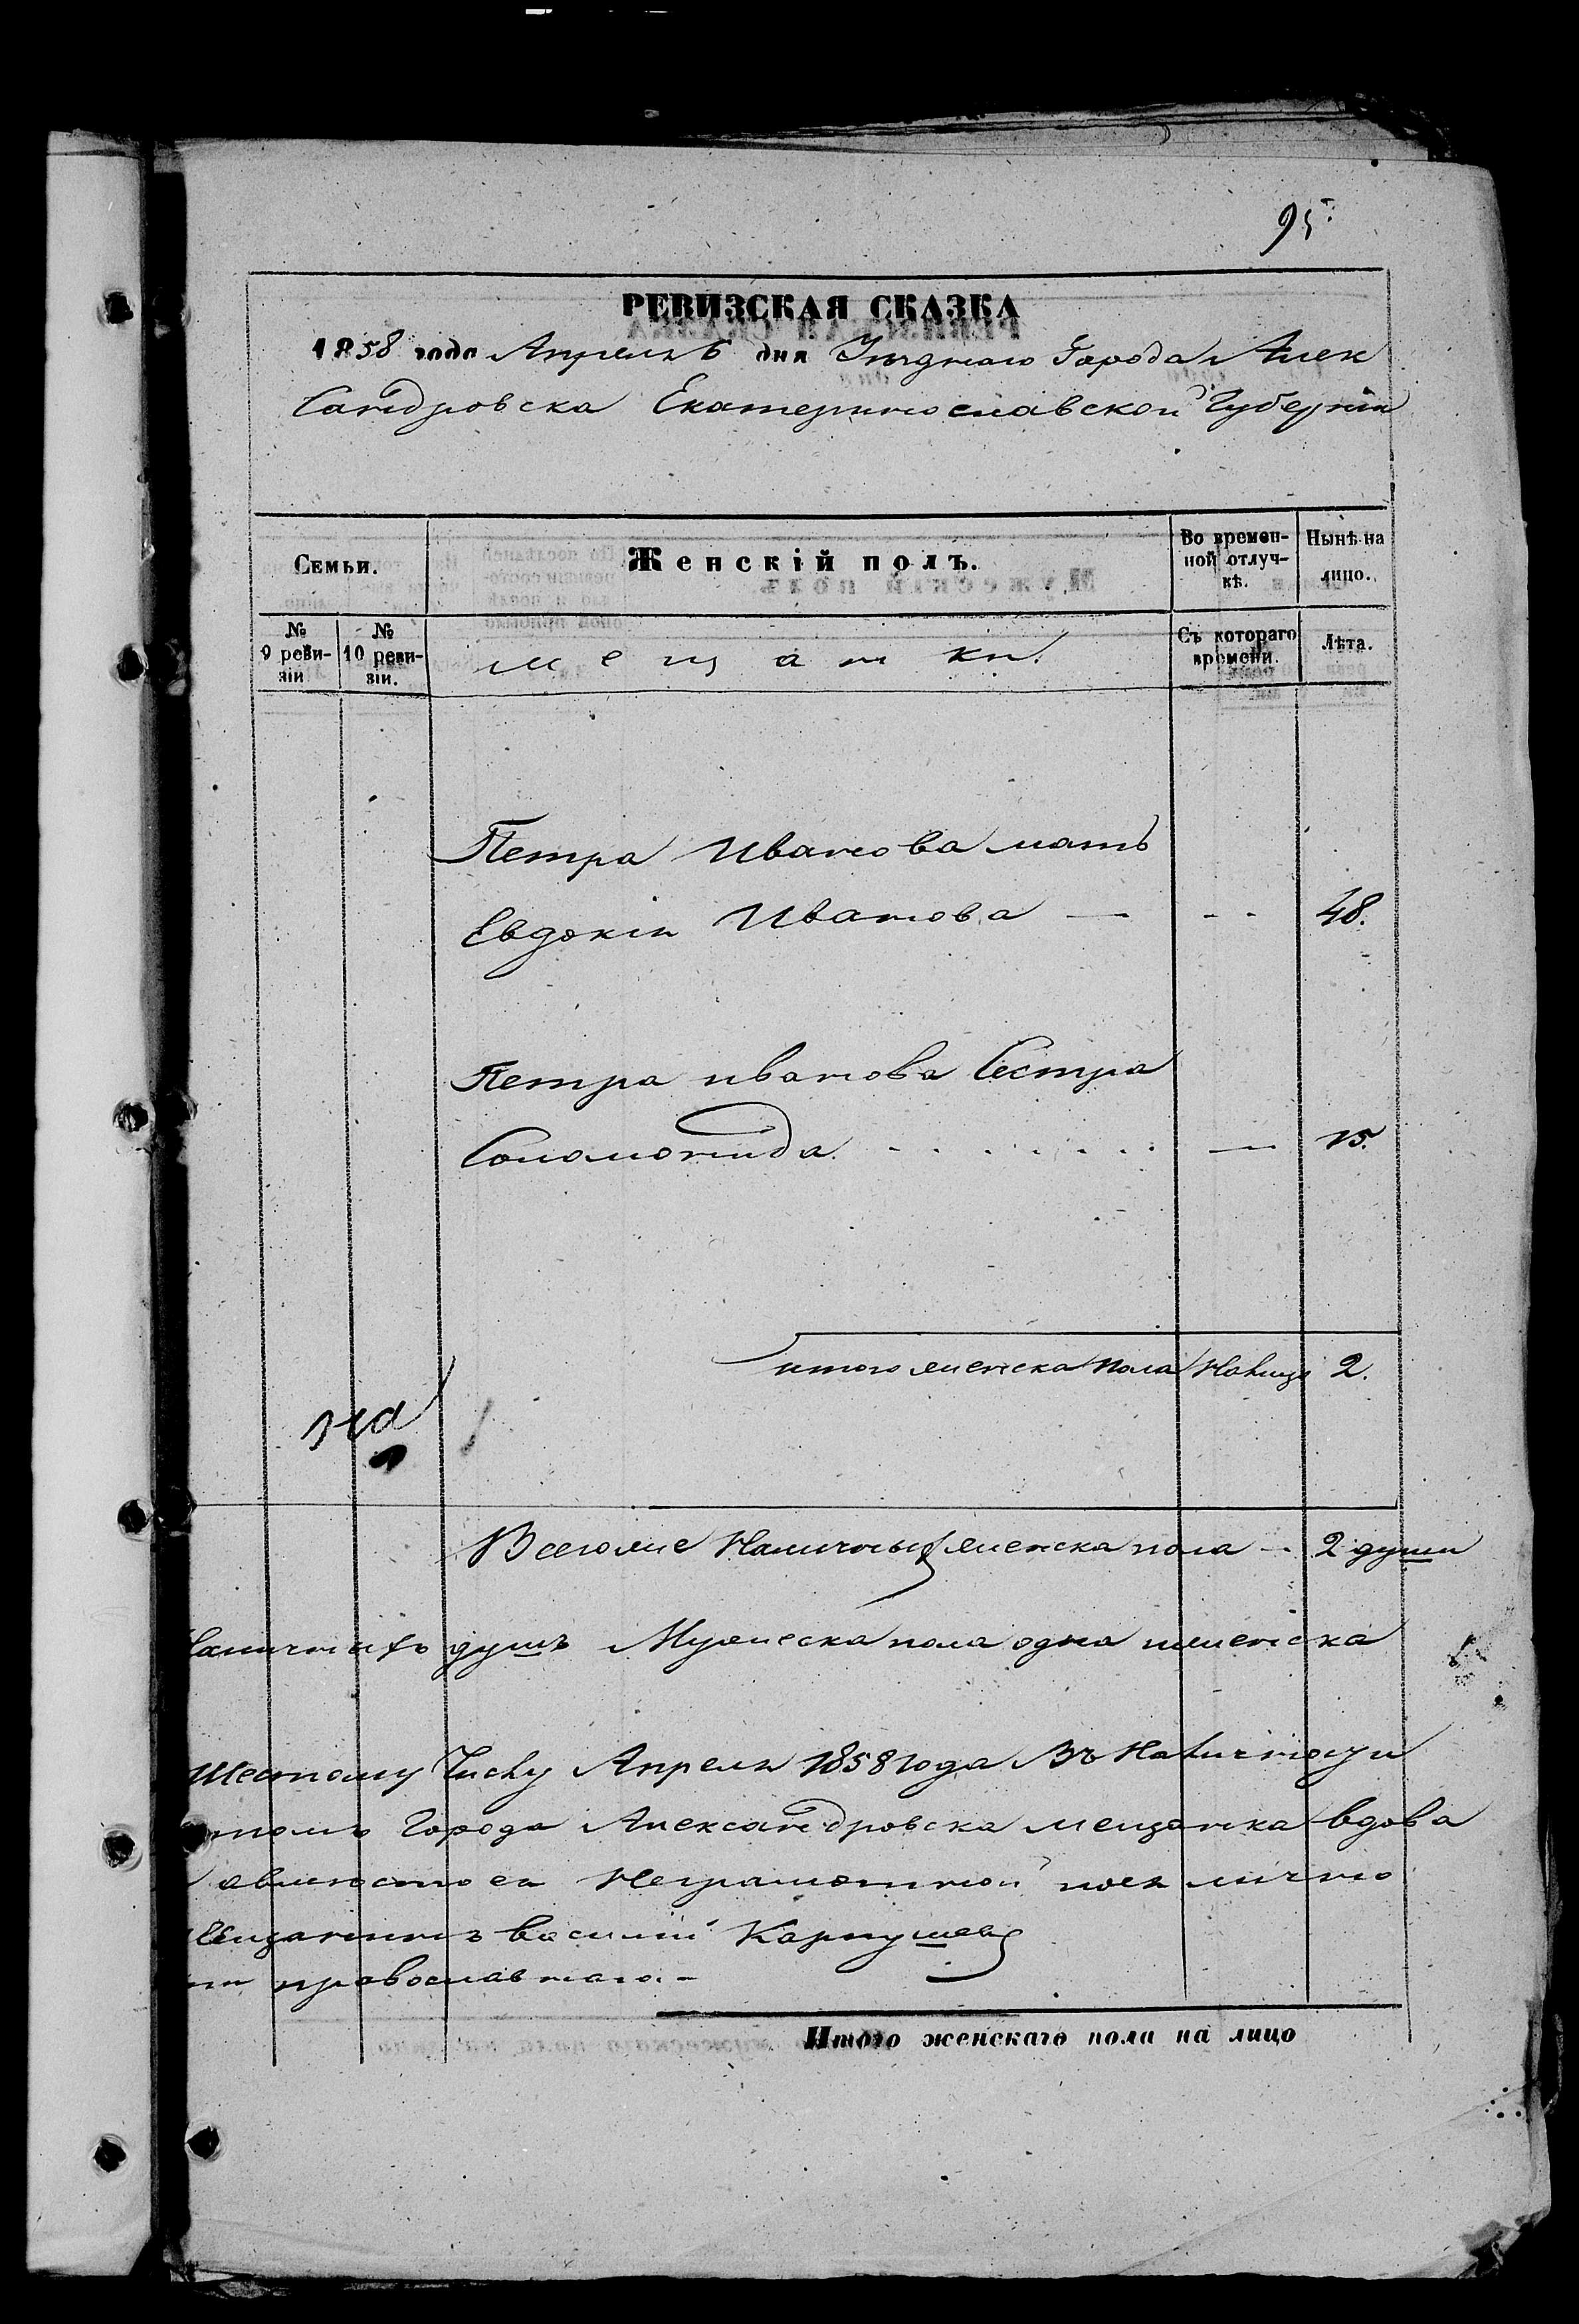 95
РЕВИЗСКАЯ СКАЗКА
1858 года Апреля 6 дня Уѣзднаго Города Алек
сандровска Екатеринославской Губерніи
Семьи.
Женскій полъ.
Во времен-
ной отлуч-
кѣ.
Нынѣ на
лицо.
№
9 реви-
зіи
№
10 реви-
зіи.
мещанки.
Съ котораго
времени.
Лѣта.
Петра Иванова мать
Евдокія Иванова — - - 48.
Петра иванова Сестра
Соломонида . . . . . . . — 15.
итого женска пола Налицо 2.
на
Всегоже Наличныхъ женска пола - 2 души
Наличныхъ душъ Мужеска пола одна иженска
Шестому Числу Апреля 1858 года Въ Наличности
томъ Города Александровска мещанка вдова
Неграмотной поея лично
мещанинъ василий Карпушевъ
православнаго. -
Итого женскаго пола на лицо